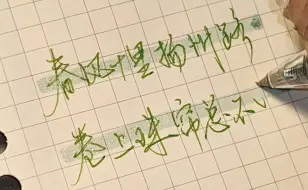 春风十里扬州路
卷上珠帘总不